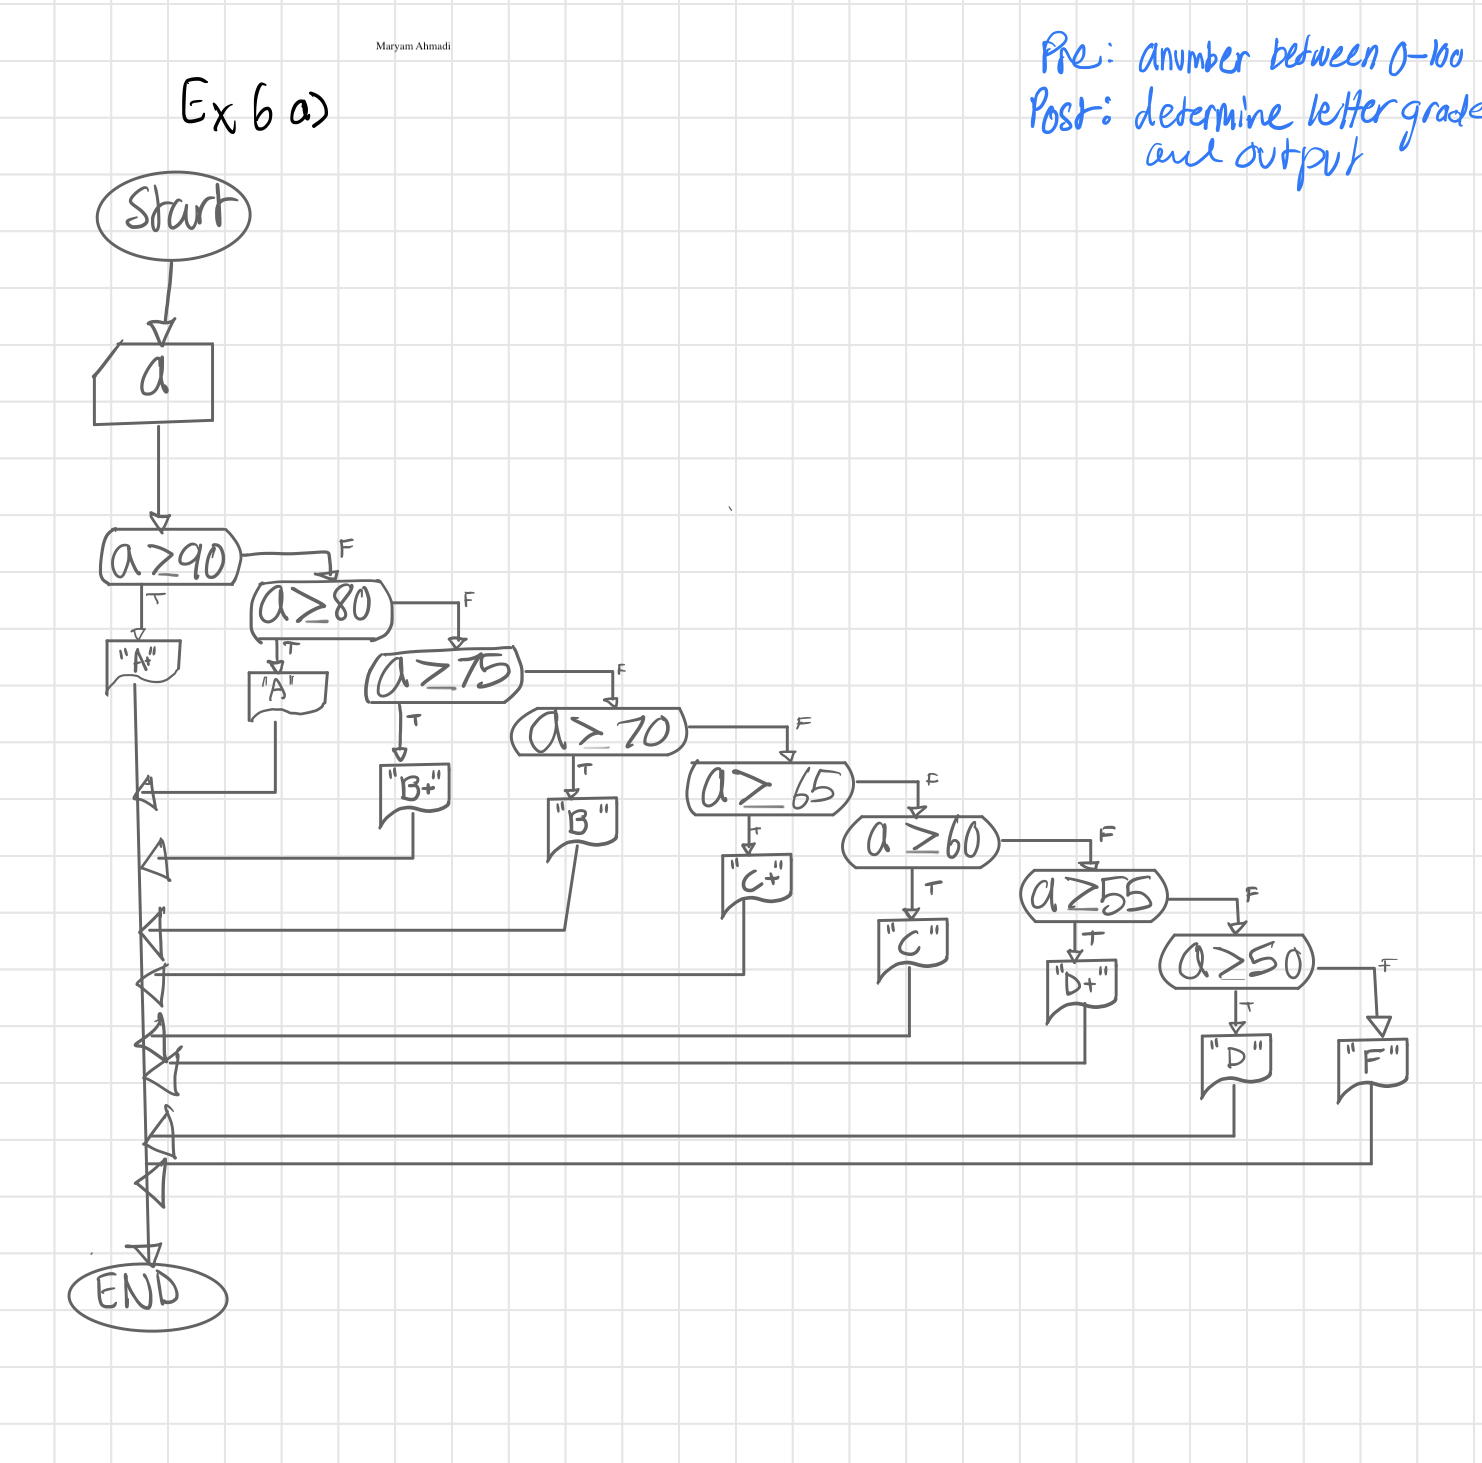 Maryam Ahmadi
Pre: a number between 0-100
Ex 6 a)
Post: determine letter grade
and output
Start
a
a≥90
F
T
a≥80
F
"A+"
T
a≥75
F
"A"
T
a≥70
F
"B+"
T
a≥65
F
"B"
T
a≥60
F
"C+"
T
a≥55
F
"C"
T
a≥50
F
"D+"
T
"D"
"F"
END